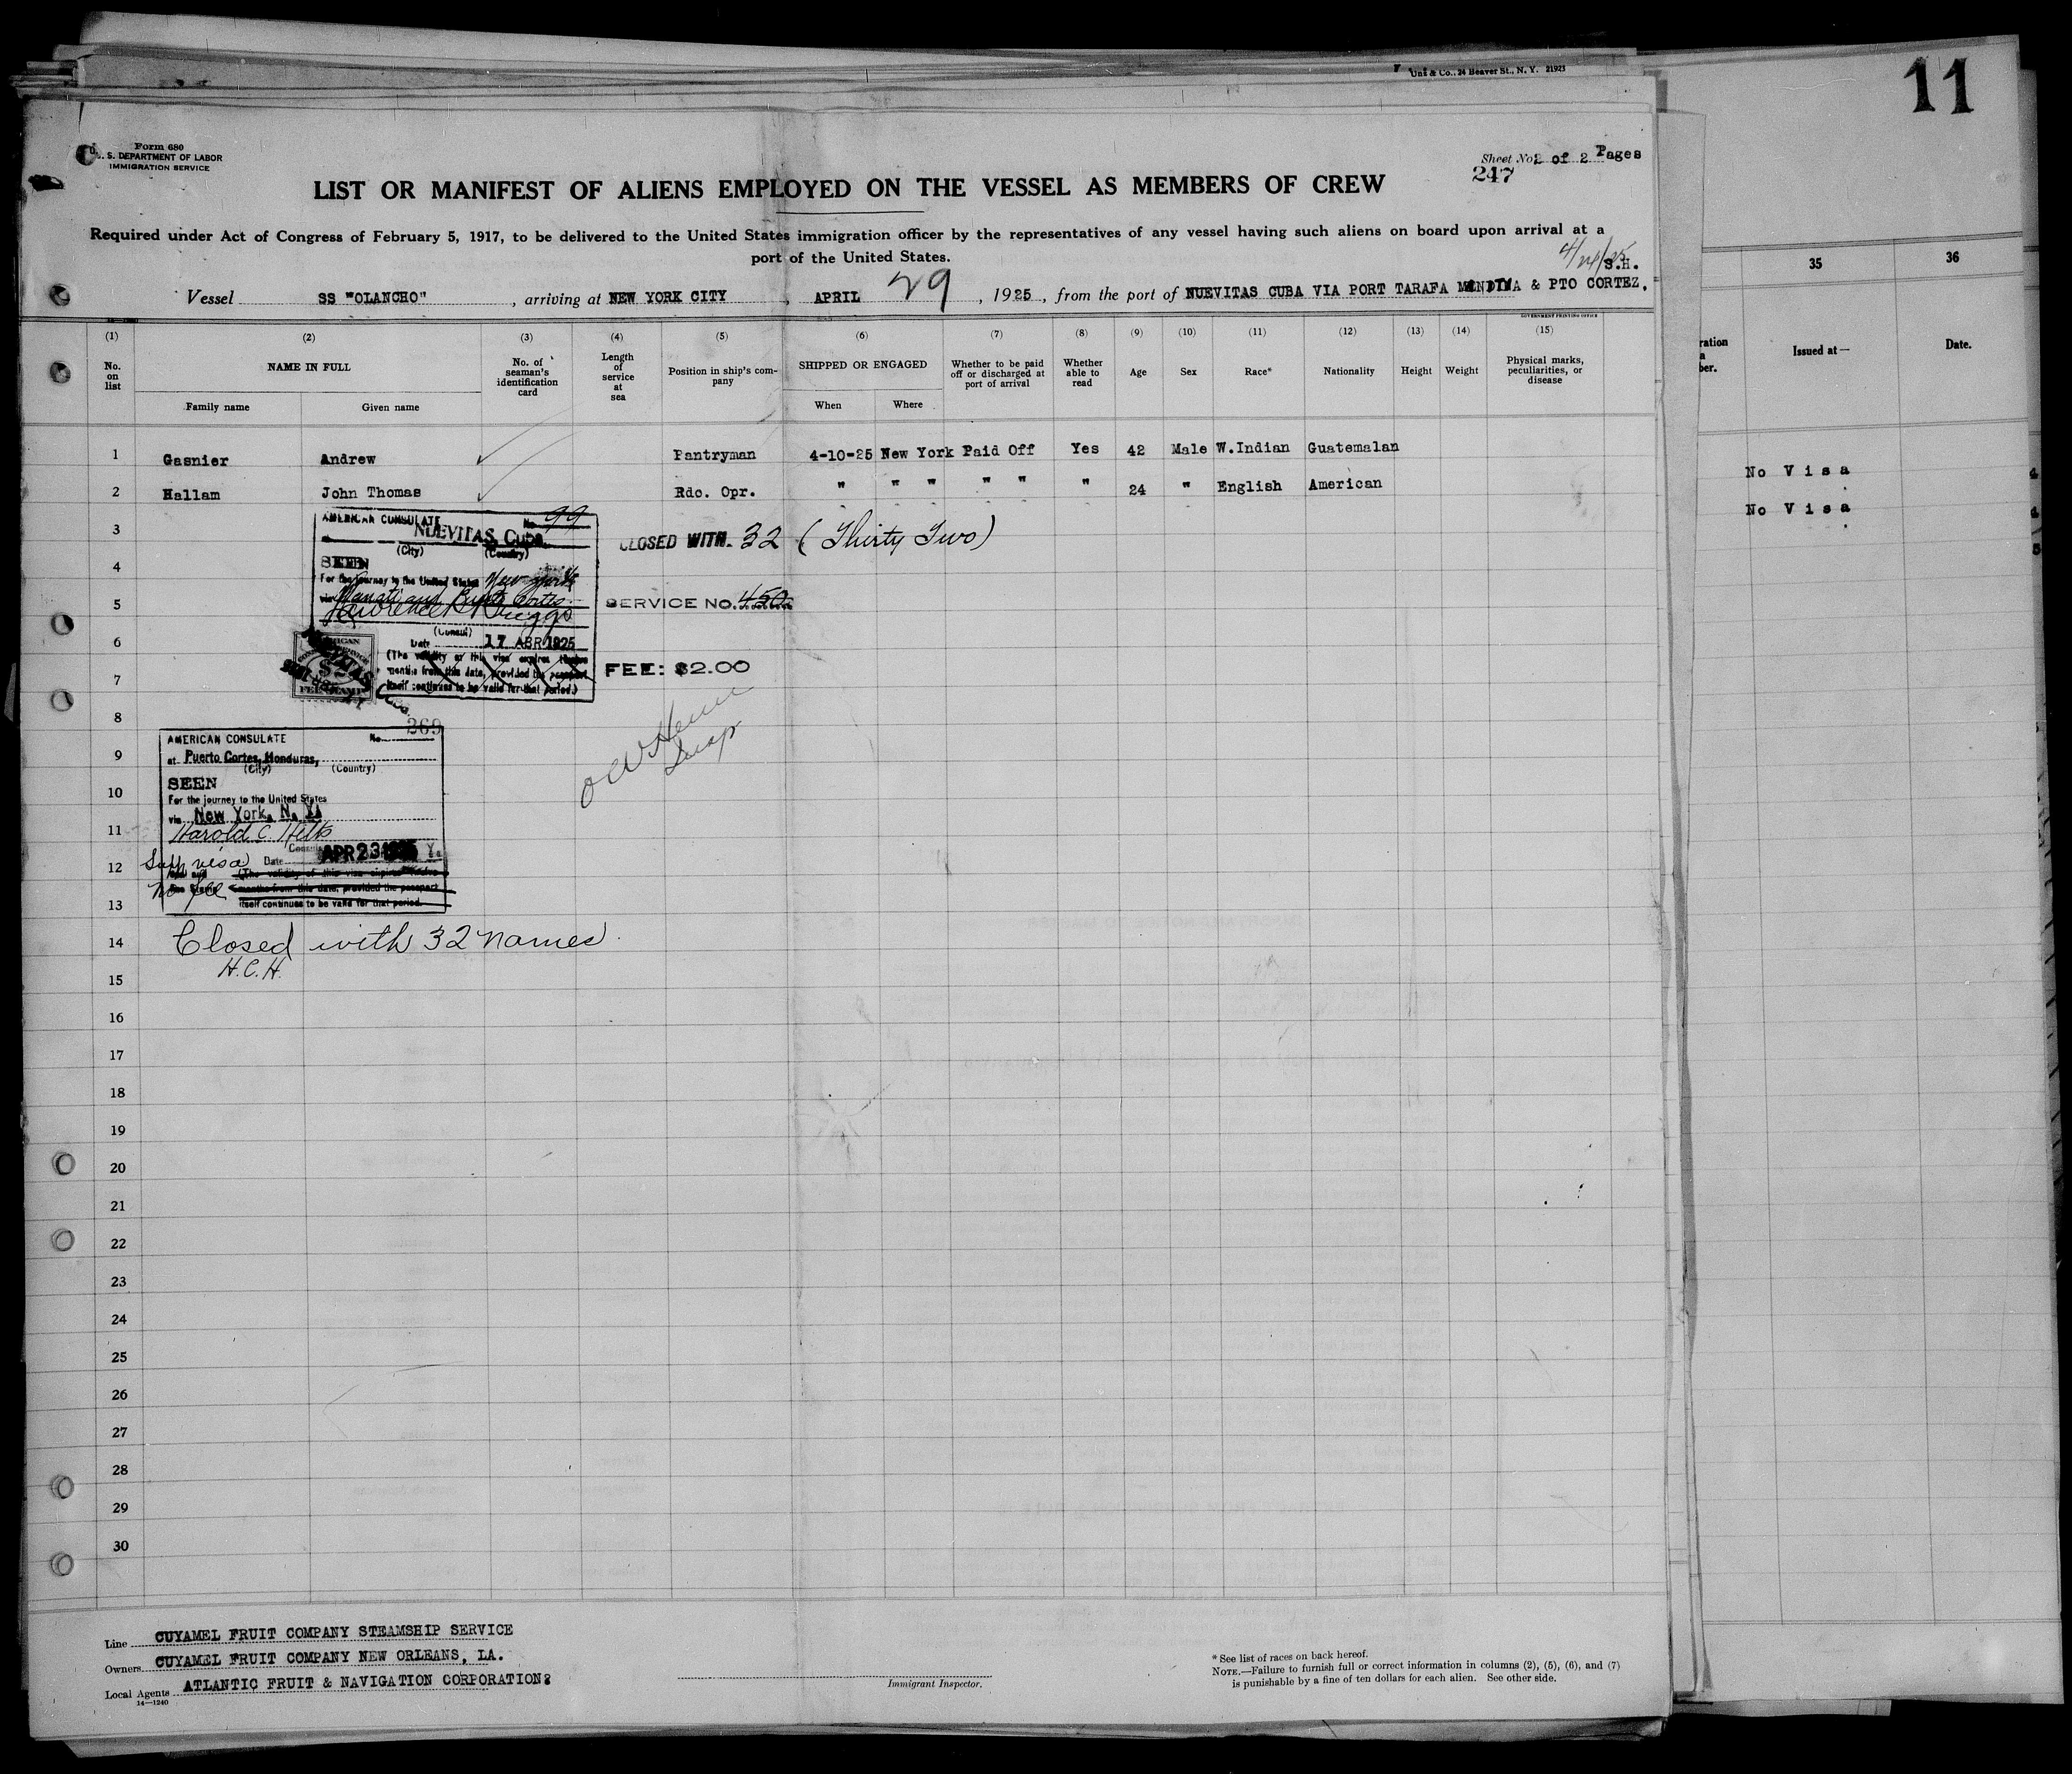 Uns & Co., 24 Beaver St., N. Y. 21923
11
Form 680
U. S. DEPARTMENT OF LABOR
IMMIGRATION SERVICE
Sheet No. 2 of 2 Pages
247
LIST OR MANIFEST OF ALIENS EMPLOYED ON THE VESSEL AS MEMBERS OF CREW
Required under Act of Congress of February 5, 1917, to be delivered to the United States immigration officer by the representatives of any vessel having such aliens on board upon arrival at a
port of the United States.
S.H.
Vessel SS "OLANCHO", arriving at NEW YORK CITY, APRIL 29, 1925, from the port of NUEVITAS CUBA VIA PORT TARAFA & PTO CORTEZ.
GOVERNMENT PRINTING OFFICE
(1) (2) (3) (4) (5) (6) (7) (8) (9) (10) (11) (12) (13) (14) (15)
No. on list NAME IN FULL No. of seaman's identification card Length of service at sea Position in ship's company SHIPPED OR ENGAGED Whether to be paid off or discharged at port of arrival Whether able to read Age Sex Race* Nationality Height Weight Physical marks, peculiarities, or disease
Family name Given name When Where
35 36
ration
ber.
Issued at— Date.
1 Gasnier Andrew Pantryman 4-10-25 New York Paid Off Yes 42 Male W.Indian Guatemalan
No Visa
2 Hallam John Thomas Rdo. Opr. " " " " " " 24 " English American
No Visa
3
4
5
6
7
8
9
10
11
12
13
14
15
16
17
18
19
20
21
22
23
24
25
26
27
28
29
30
AMERICAN CONSULATE No. 99
NUEVITAS, Cuba.
(City) (Country)
SEEN
For the journey to the United States New York
via Manati and Puerto Cortes
Lawrence P. Briggs
(Consul)
Date 17 ABR 1925
(The validity of this visa expires twelve
months from this date, provided the passport
itself continues to be valid for that period.)
CLOSED WITH 32 (Thirty Two)
SERVICE NO. 450
FEE: $2.00
AMERICAN CONSULATE No. 269
at Puerto Cortes, Honduras,
(City) (Country)
SEEN
For the journey to the United States
via New York, N. Y.
Harold C.
Date APR 23 1925
Supp visa
no fee
(The validity of this visa expires twelve
months from this date, provided the passport
itself continues to be valid for that period.
Closed with 32 names.
H.C.H.
Line CUYAMEL FRUIT COMPANY STEAMSHIP SERVICE
Owners CUYAMEL FRUIT COMPANY NEW ORLEANS, LA.
Local Agents ATLANTIC FRUIT & NAVIGATION CORPORATION
14—1240
Immigrant Inspector.
* See list of races on back hereof.
NOTE.—Failure to furnish full or correct information in columns (2), (5), (6), and (7)
is punishable by a fine of ten dollars for each alien. See other side.